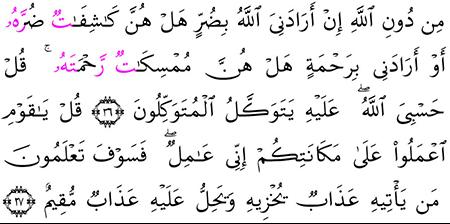 مِن دُونِ ٱللَّهِ إِنْ أَرَادَنِىَ ٱللَّهُ بِضُرٍّ هَلْ هُنَّ كَٰشِفَٰتٌ ضُرَّهُۥ
أَوْ أَرَادَنِى بِرَحْمَةٍ هَلْ هُنَّ مُمْسِكَٰتٌ رَّحْمَتَهُۥ ۚ قُلْ
حَسْبِىَ ٱللَّهُ ۖ عَلَيْهِ يَتَوَكَّلُ ٱلْمُتَوَكِّلُونَ ٣٦ قُلْ يَٰقَوْمِ
ٱعْمَلُوا۟ عَلَىٰ مَكَانَتِكُمْ إِنِّى عَٰمِلٌ ۖ فَسَوْفَ تَعْلَمُونَ
مَن يَأْتِيهِ عَذَابٌ يُخْزِيهِ وَيَحِلُّ عَلَيْهِ عَذَابٌ مُّقِيمٌ ٣٧